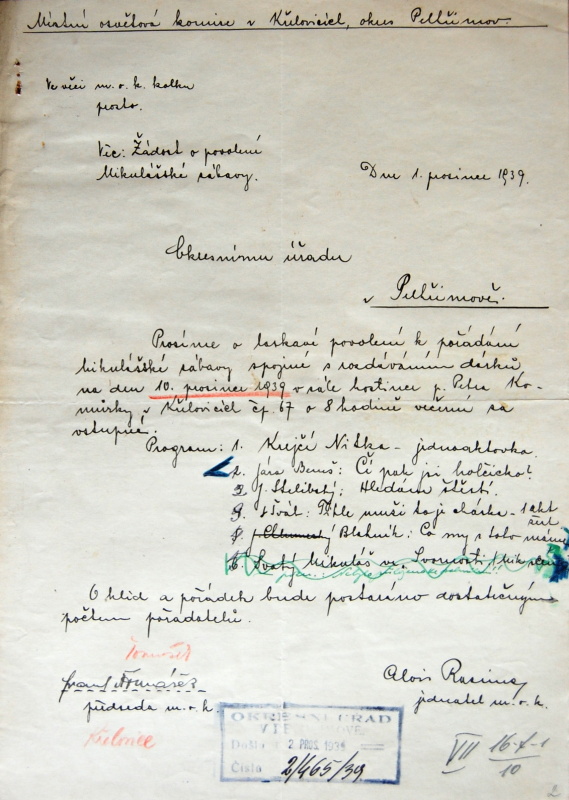 Místní osvětová komise v Křelovicích, okres Pelhřimov.
Ve věci m. o. k. kolku
prosto.
Věc: Žádost o povolení
Mikulášské zábavy.
Dne 1. prosince 1939.
Okresnímu úřadu
v Pelhřimově.
Prosíme o laskavé povolení k pořádání
mikulášské zábavy spojené s rozdáváním dárků
na den 10. prosince 1939 v sále hostince p. Petra Ko-
můrky v Křelovicích čp 67 o 8 hodině večerní za
vstupné.
Program: 1. Krejčí Nitka – jednoaktovka.
2. Jára Beneš: Čí pak jsi holčičko?
3. J. Stelibský: Hledám štěstí.
Tahle muší to je otázka – 1 akt
Blatník: Co my s tolo máme
6. Svatý Mikuláš ve
O klid a pořádek bude postaráno dostatečným
počtem pořadatelů.
Tomášek
Frant. Tomášek
předseda m. o. k.
Křelovice
Alois
jednatel m. o. k.
OKRESNÍ ÚŘAD
Došlo: 2. PROS. 1939
Číslo 2/465/39.
VII 16-1-1
10
2